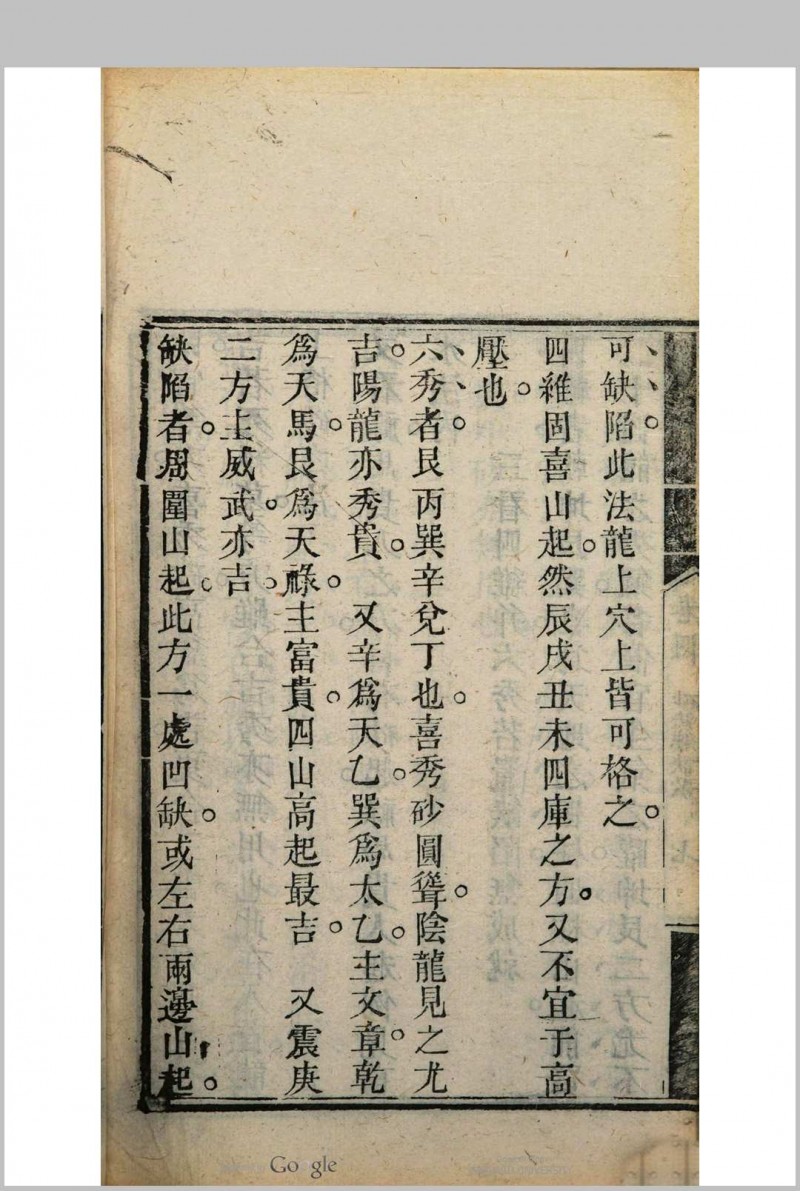 可缺陷此法龍上穴上皆可格之。
四維固喜山起。然辰戌丑未四庫之方。又不宜于高
壓也。
六秀者。艮丙巽辛兌丁也。喜秀砂圓聳。陰龍見之尤
吉。陽龍亦秀貴。又辛爲天乙。巽爲太乙。主文章。乾
爲天馬。艮爲天祿。主富貴。四山高起最吉。又震庚
二方主威武。亦吉。
缺陷者。周圍山起。此方一處凹缺。或左右兩邊山起。
Google